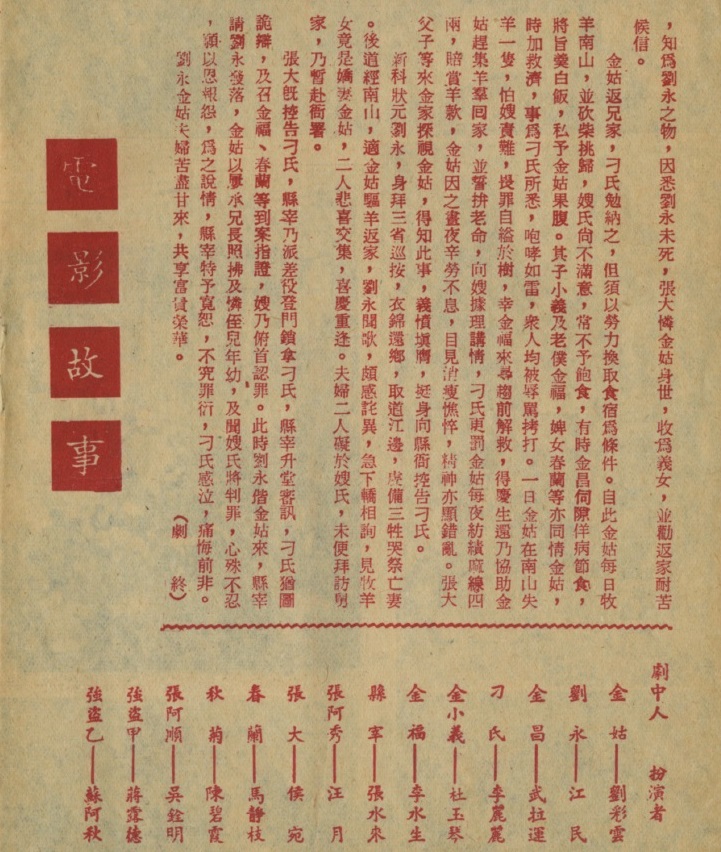 ，知爲劉永之物，因悉劉永未死，張大憐金姑身世，收爲義女，並勸返家耐苦
候信。
金姑返兄家，刁氏勉納之，但須以勞力換取食宿爲條件。自此金姑每日牧
羊南山，並砍柴挑歸，嫂氏尙不滿意，常不予飽食，有時金昌伺隙佯病節食，
將旨羹白飯，私予金姑果腹。其子小義及老僕金福，婢女春蘭等亦同情金姑，
時加救濟，事爲刁氏所悉，咆哮如雷，衆人均被辱駡拷打。一日金姑在南山失
羊一隻，怕嫂責難，畏罪自縊於樹，幸金福來尋趨前解救，得慶生還乃協助金
姑趕集羊羣回家，並誓拚老命，向嫂據理講情，刁氏更罰金姑每夜紡績蔴線四
兩，賠賞羊欵，金姑因之晝夜辛勞不息，目見消瘦憔悴，精神亦顯錯亂。張大
父子等來金家探視金姑，得知此事，義憤塡膺，挺身向縣衙控告刁氏。
新科狀元劉永，身拜三省巡按，衣錦還鄉，取道江邊，虔備三牲哭祭亡妻
。後道經南山，適金姑驅羊返家，劉永聞歌，頗感詫異，急下轎相詢，見牧羊
女竟是嬌妻金姑，二人悲喜交集，喜慶重逢。夫婦二人礙於嫂氏，未便拜訪舅
家，乃暫赴衙署。
張大旣控告刁氏，縣宰乃派差役登門鎖拿刁氏，縣宰升堂審訊，刁氏猶圖
詭辯，及召金福、春蘭等到案指證，嫂乃俯首認罪。此時劉永偕金姑來，縣宰
請劉永發落，金姑以屢承兄長照拂及憐侄兒年幼，及聞嫂氏將判罪，心殊不忍
，願以恩報怨，爲之說情，縣宰特予寬恕，不究罪衍，刁氏感泣，痛悔前非。
劉永金姑夫婦苦盡甘來，共享富貴榮華。
（劇　終）
電影故事
劇中人　扮演者
金姑——劉彩雲
劉永——江民
金昌——武拉運
刁氏——李麗麗
金小義——杜玉琴
金福——李水生
縣宰——張水來
張阿秀——汪月
張大——侯宛
春蘭——馬靜枝
秋菊——陳碧霞
張阿順——吳銓明
強盜甲——蔣露德
強盜乙——蘇阿秋